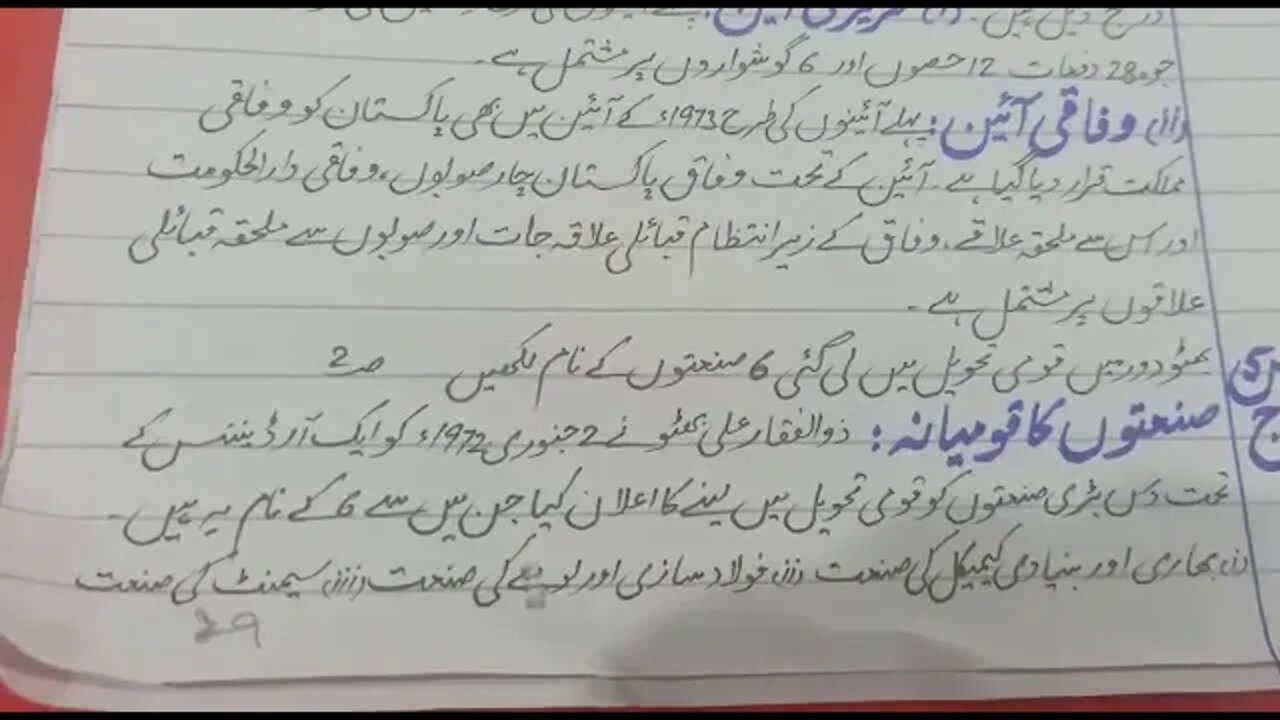 درج ذیل ہیں۔ (i) تحریری آئین:
جو 28 دفعات 12 حصوں اور 6 گوشواروں پر مشتمل ہے۔
(ii) وفاقی آئین: پہلے آئینوں کی طرح 1973ء کے آئین میں بھی پاکستان کو وفاقی
مملکت قرار دیا گیا ہے۔ آئین کے تحت وفاق پاکستان چار صوبوں، وفاقی دارالحکومت
اور اس سے ملحقہ علاقے، وفاق کے زیر انتظام قبائلی علاقہ جات اور صوبوں سے ملحقہ قبائلی
علاقوں پر مشتمل ہے۔
س5 بھٹو دور میں قومی تحویل میں لی گئی 6 صنعتوں کے نام لکھیں ص 2
ج صنعتوں کا قومیانہ: ذوالفقار علی بھٹو نے 2 جنوری 1972ء کو ایک آرڈیننس کے
تحت دس بڑی صنعتوں کو قومی تحویل میں لینے کا اعلان کیا جن میں سے 6 کے نام یہ ہیں۔
(i) بھاری اور بنیادی کیمیکل کی صنعت (ii) فولاد سازی اور لوہے کی صنعت (iii) سیمنٹ کی صنعت
29